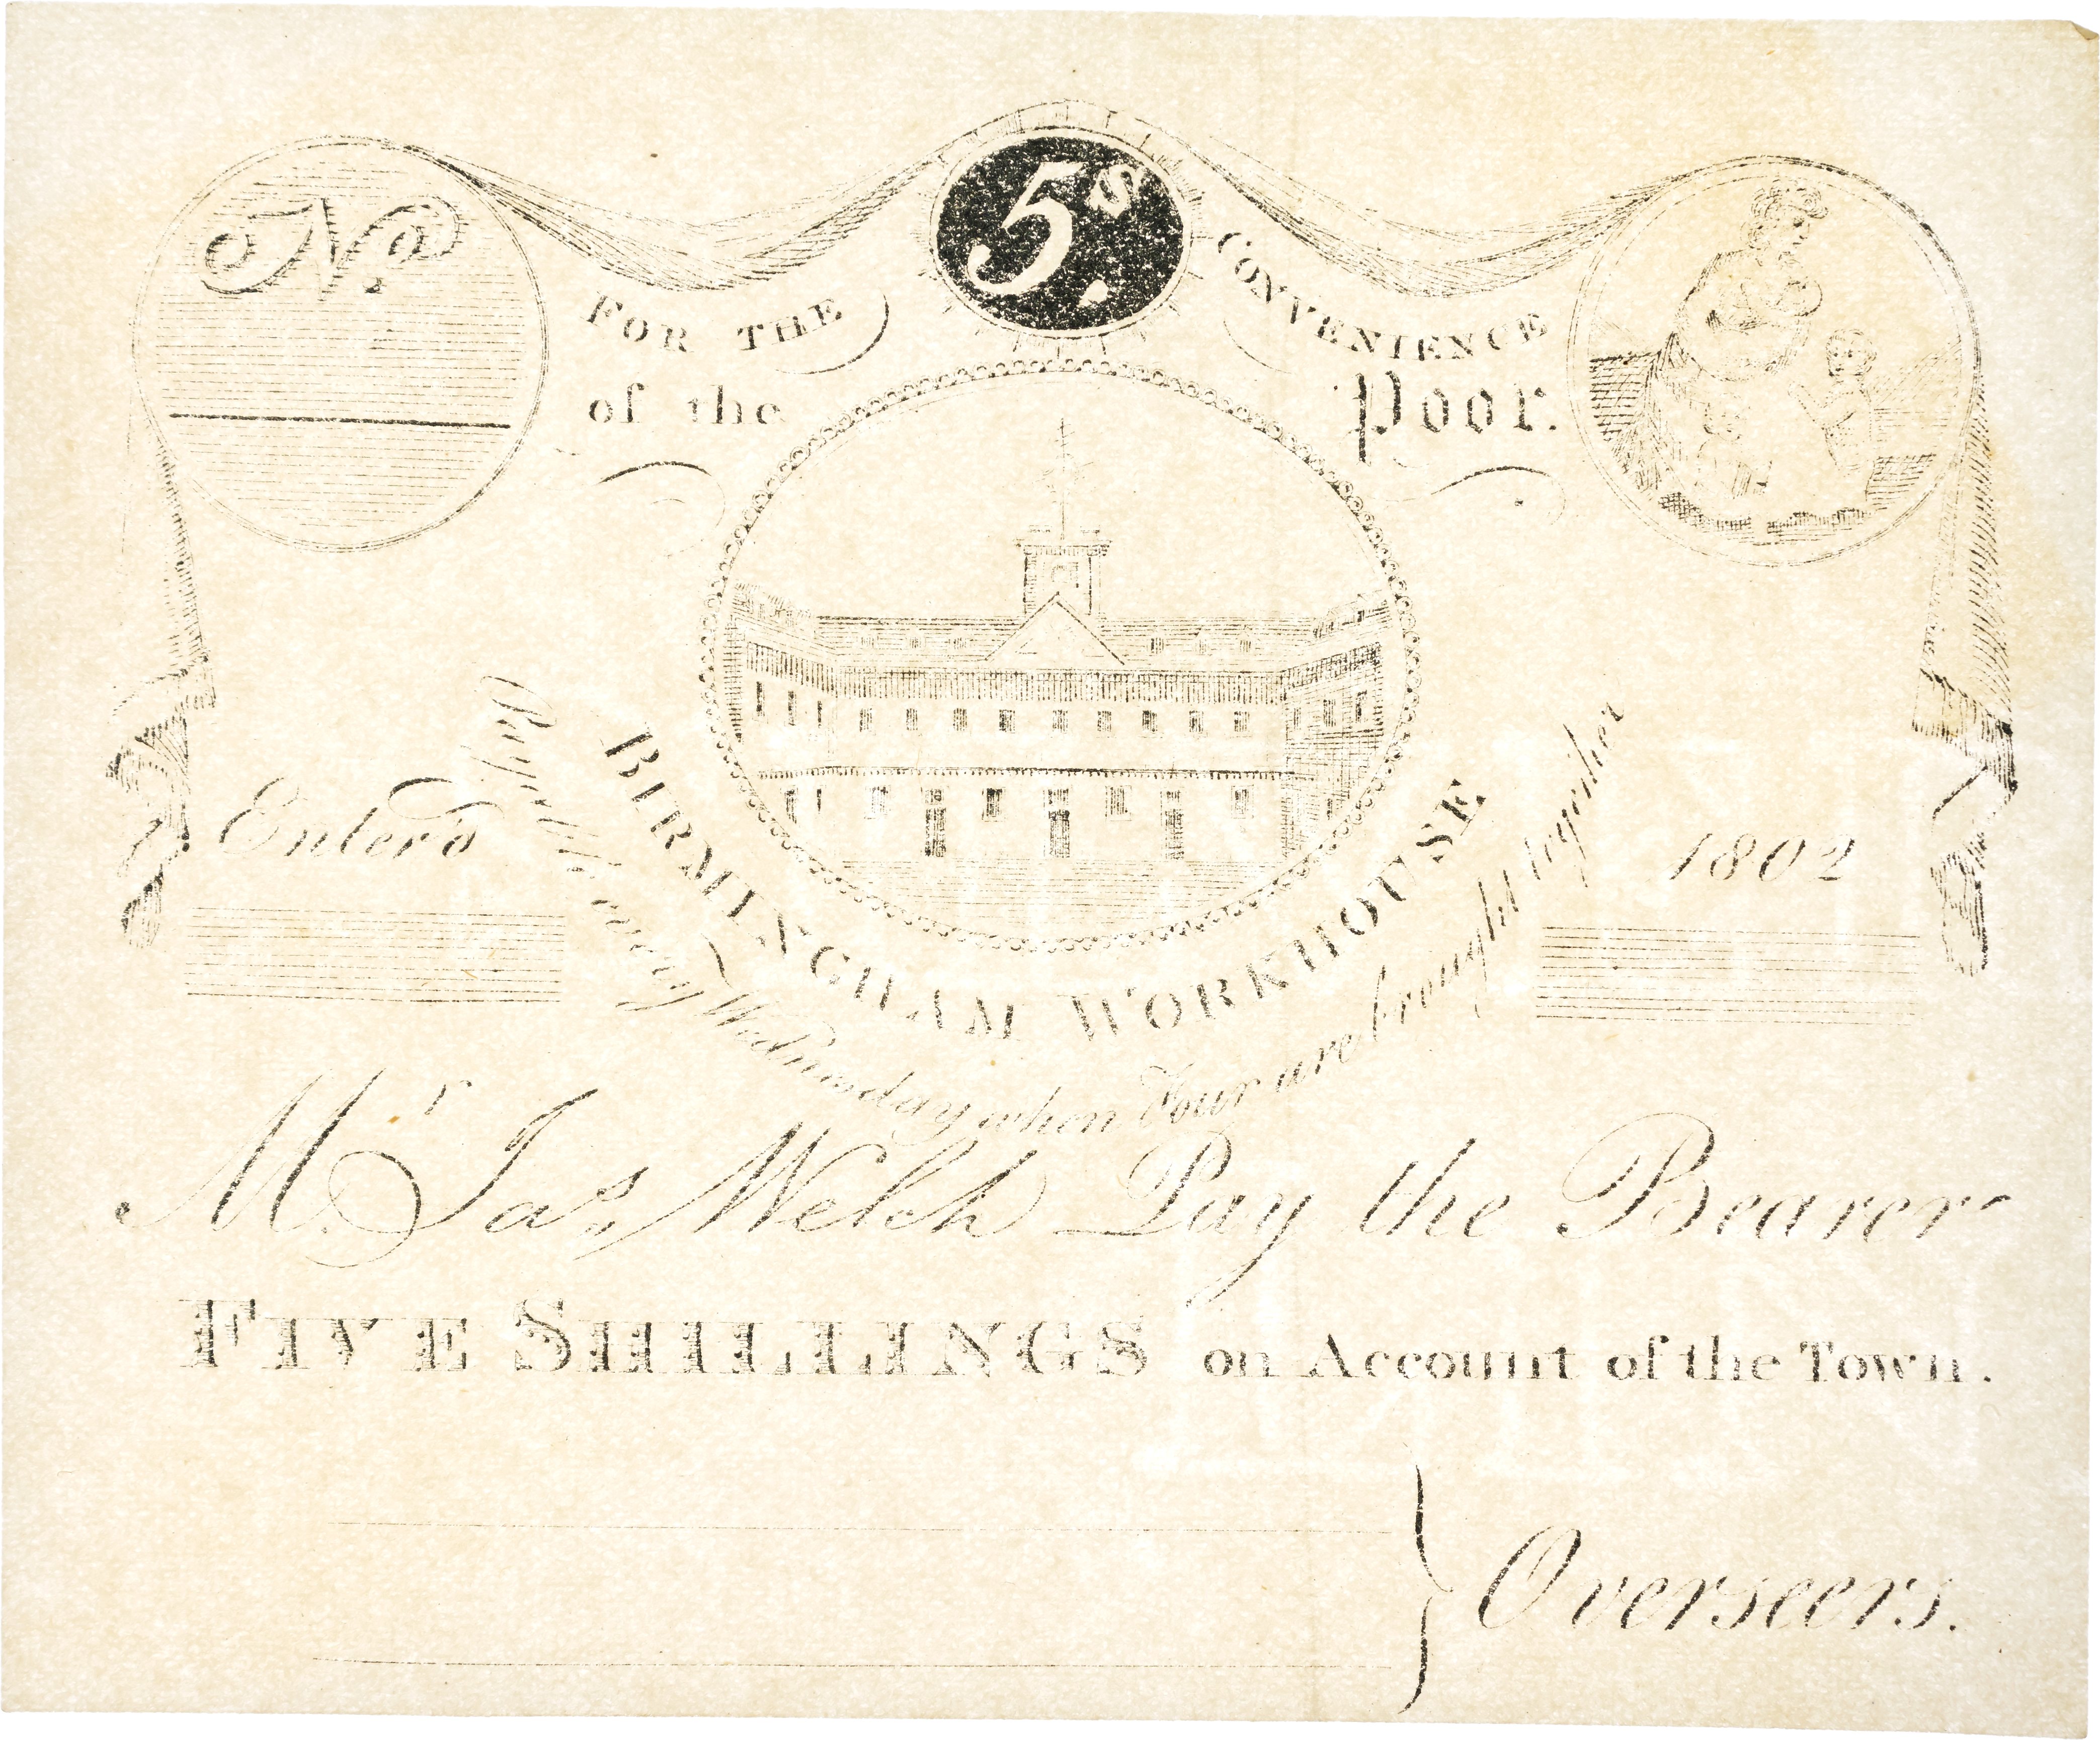 5s.
No.
FOR THE CONVENIENCE
of the Poor.
BIRMINGHAM WORKHOUSE
Payable every Wednesday when Four are brought together
Enter'd
1802
Mr. Jas. Welch Pay the Bearer
FIVE SHILLINGS on Account of the Town.
Overseers.